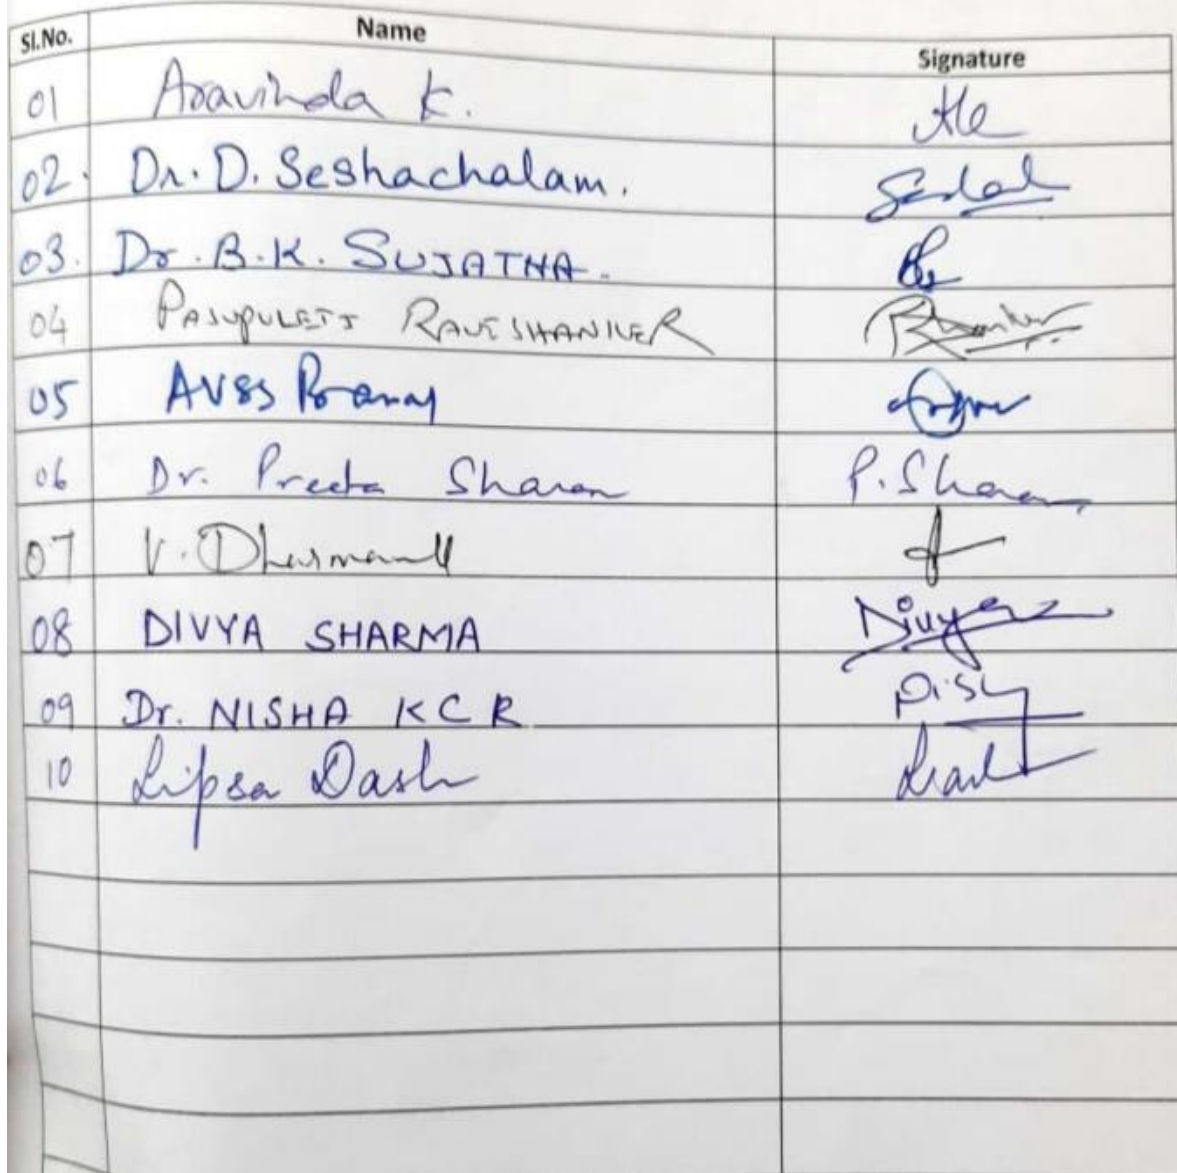 Sl.No. Name Signature
01 Aravinda K.
02. Dr. D. Seshachalam.
03. Dr. B.K. SUJATHA.
04 PASUPULETI RAVISHANKER
05 AVSS
06 Dr. Preeta Sharan P. Sharan
07 V.
08 DIVYA SHARMA Divya
09 Dr. NISHA KCR
10 Lipsa Dash